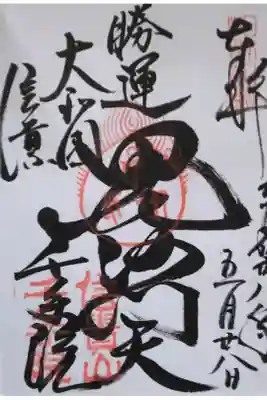 奉拝
五月廿八日
勝運
毘沙門天
大和国
信貴
千手院
信貴山